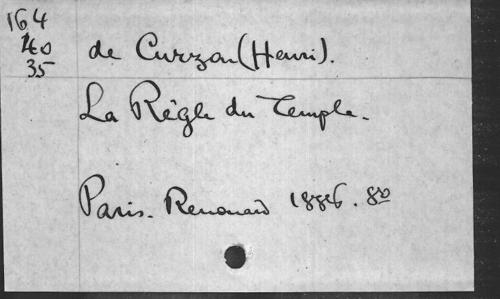 164
40
35
de Curzon (Henri).
La Règle du Temple.
Paris. Renouard 1886. 8º